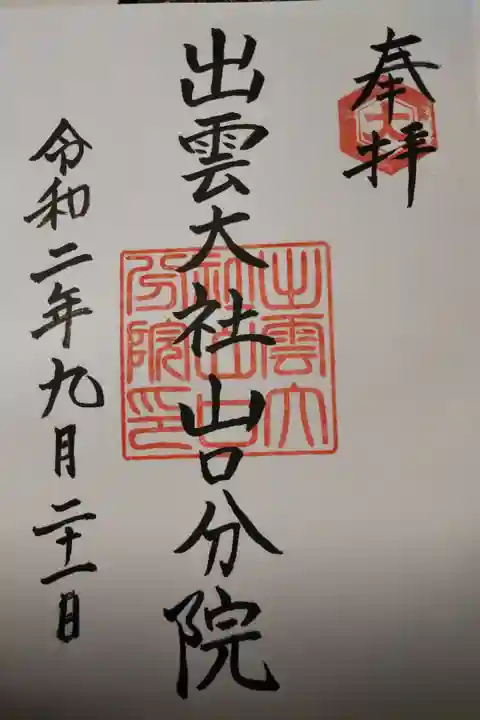 奉拝
大
出雲大社山口分院
出雲大
社山口
分院印
令和二年九月二十一日